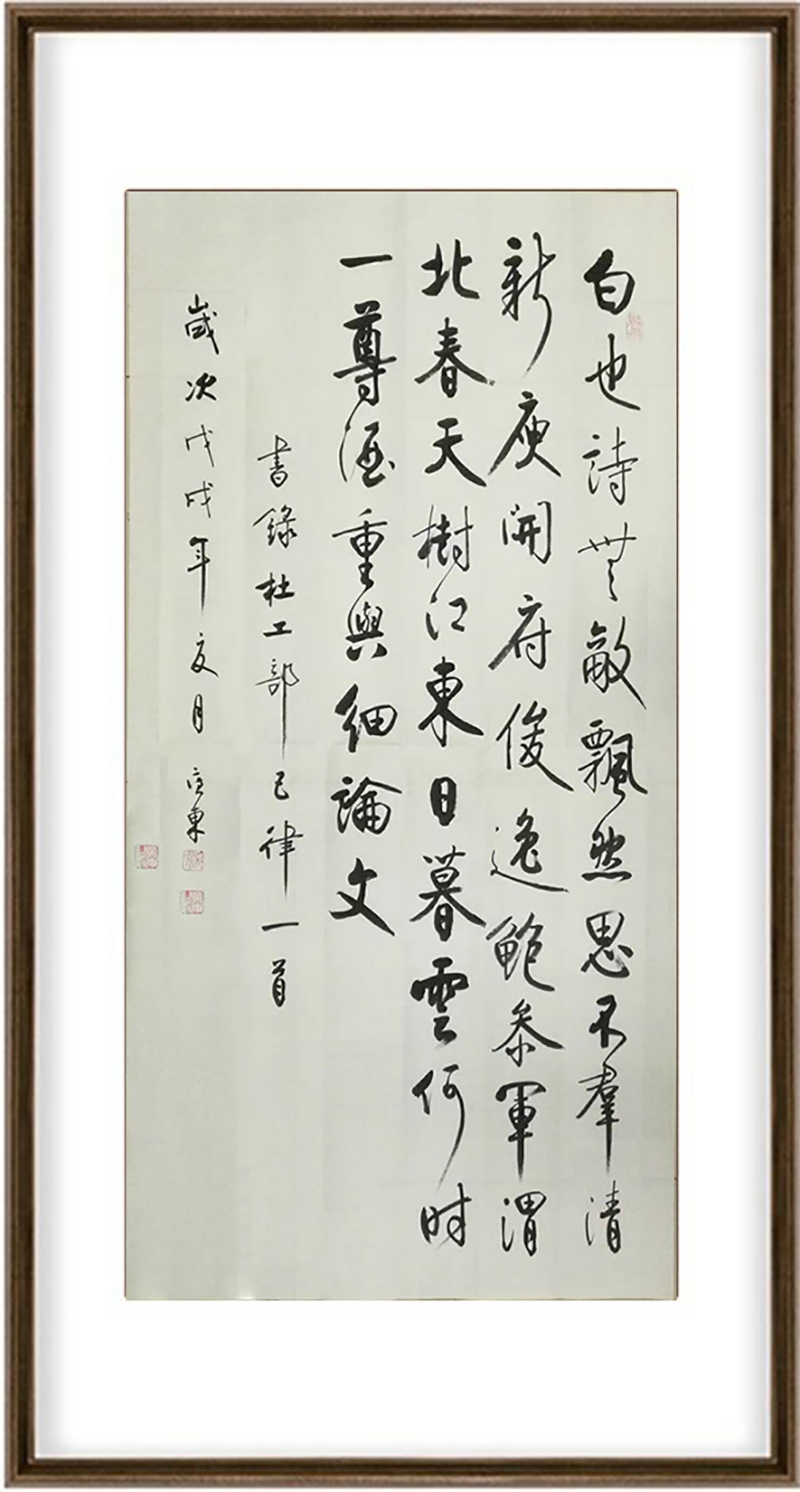 白也詩無敵飄然思不羣清
新庾開府俊逸鮑参軍渭
北春天樹江東日暮雲何时
一尊酒重與細論文
書錄杜工部五律一首
歲次戊戌年夏月東